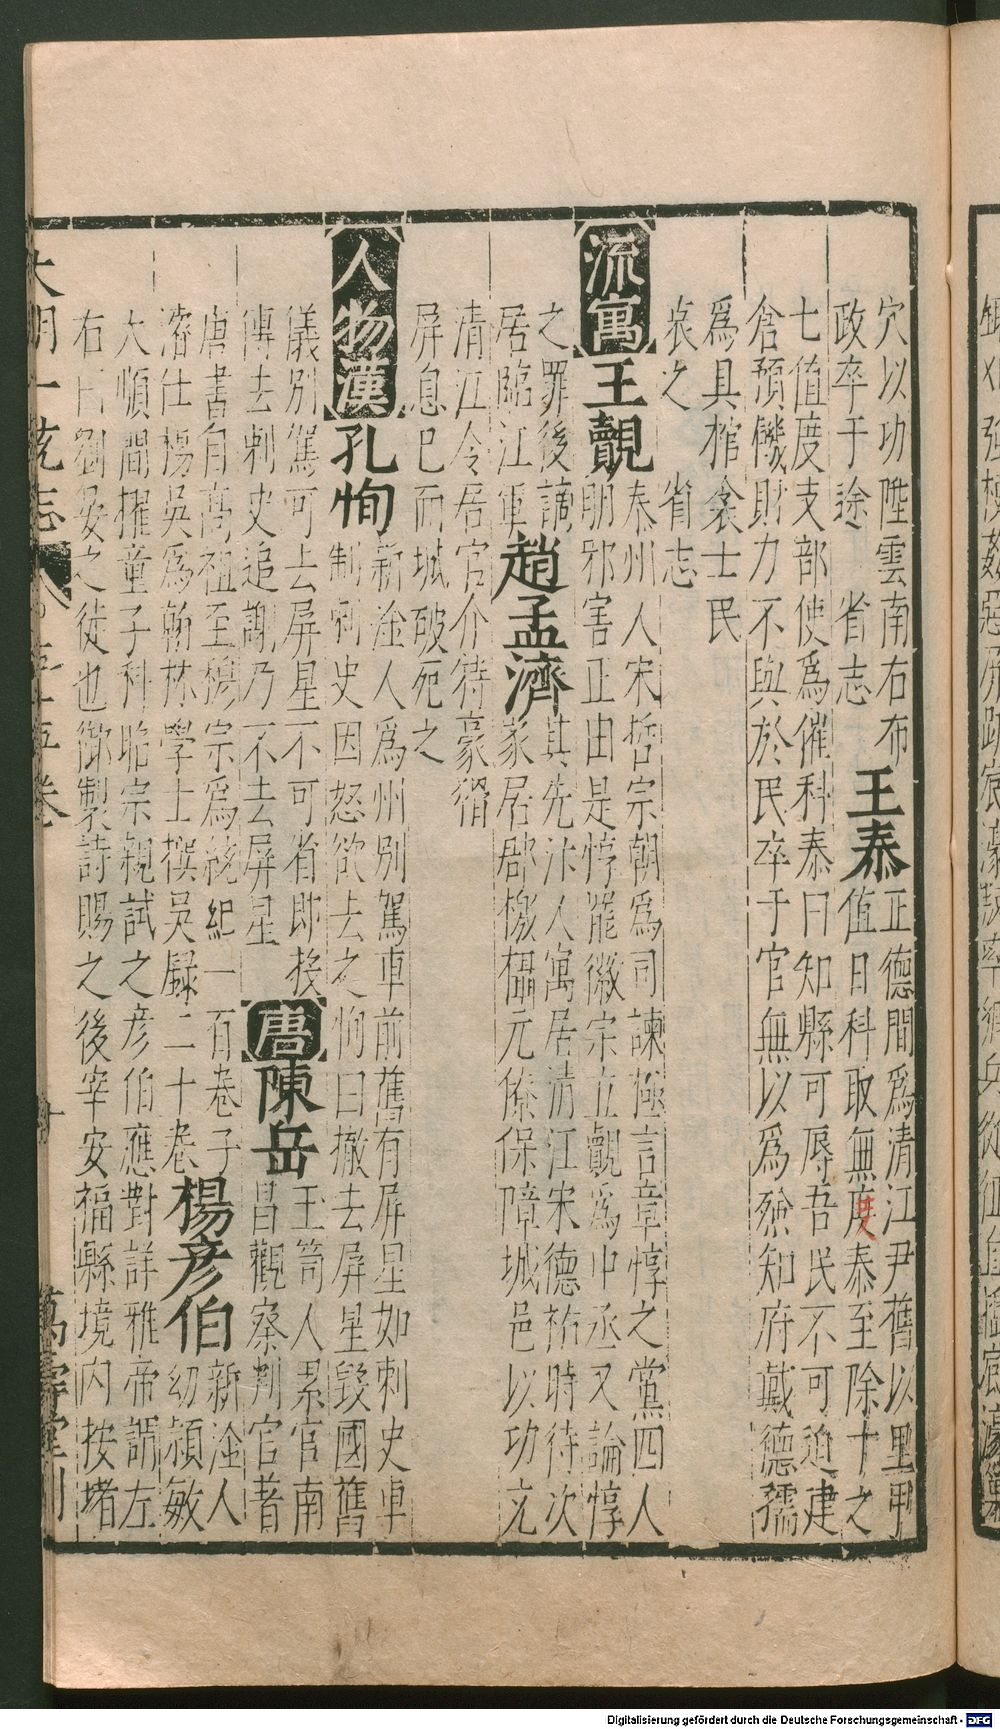 穴以功陞雲南右布
政卒于途 省志
王泰
正德間爲清江尹舊以里甲
值日科取無度泰至除十之
七值度支部使爲催科泰曰知縣可辱吾民不可迫建
倉預饑財力不與於民卒于官無以爲殮知府戴德孺
爲具棺衾士民
哀之 省志
流寓
王覿
泰州人宋哲宗朝爲司諫極言章惇之黨四人
朋邪害正由是惇罷徽宗立覿爲中丞又論惇
之罪後謫
居臨江軍
趙孟濟
其先汴人寓居清江宋德祐時待次
家居郡檄攝元僚保障城邑以功充
清江令居官介待豪猾
屏息已而城破死之
人物
漢
孔恂
新淦人爲州別駕車前舊有屏星如刺史車
制刺史因怒欲去之恂曰撤去屏星毀國舊
儀別駕可去屏星不可省即投
傳去刺史追謝乃不去屏星
唐
陳岳
玉笥人累官南
昌觀察判官著
唐書自高祖至穆宗爲統紀一百卷子
濬仕楊吳爲翰林學士撰吳録二十卷
楊彦伯
新淦人
幼頴敏
大順間擢童子科昭宗親試之彦伯應對詳雅帝謂左
右曰劉晏之徒也御製詩賜之後宰安福縣境内按堵
大明一統志
五十五卷
十
萬壽堂刊
Digitalisierung gefördert durch die Deutsche Forschungsgemeinschaft - DFG